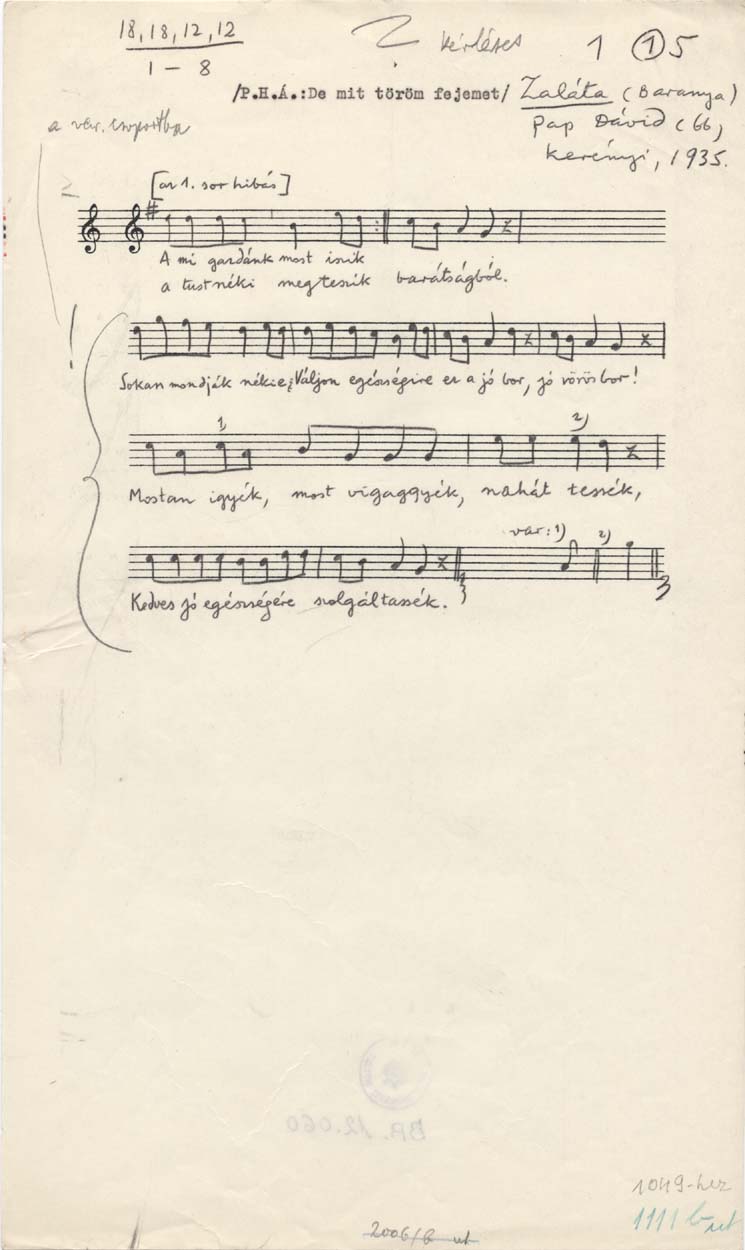 18, 18, 12, 12
1 – 8
kérdéses
1 ① 5
/P.H.Á.:De mit töröm fejemet/ Zaláta (Baranya)
Pap Dávid (66)
Kerényi, 1935.
a var. csoportba
[az 1. sor hibás]
A mi gazdánk most iszik
a tust néki megteszik barátságból.
!
Sokan mondják nékie: Váljon egésségire ez a jó bor, jó vörösbor!
1) 2)
Mostan igyék, most vigaggyék, no hát tessék,
var: 1) 2)
Kedves jó egésségére szolgáltassék.
BR. 12.060
1049-hez
1111 b ut
2006/b ut